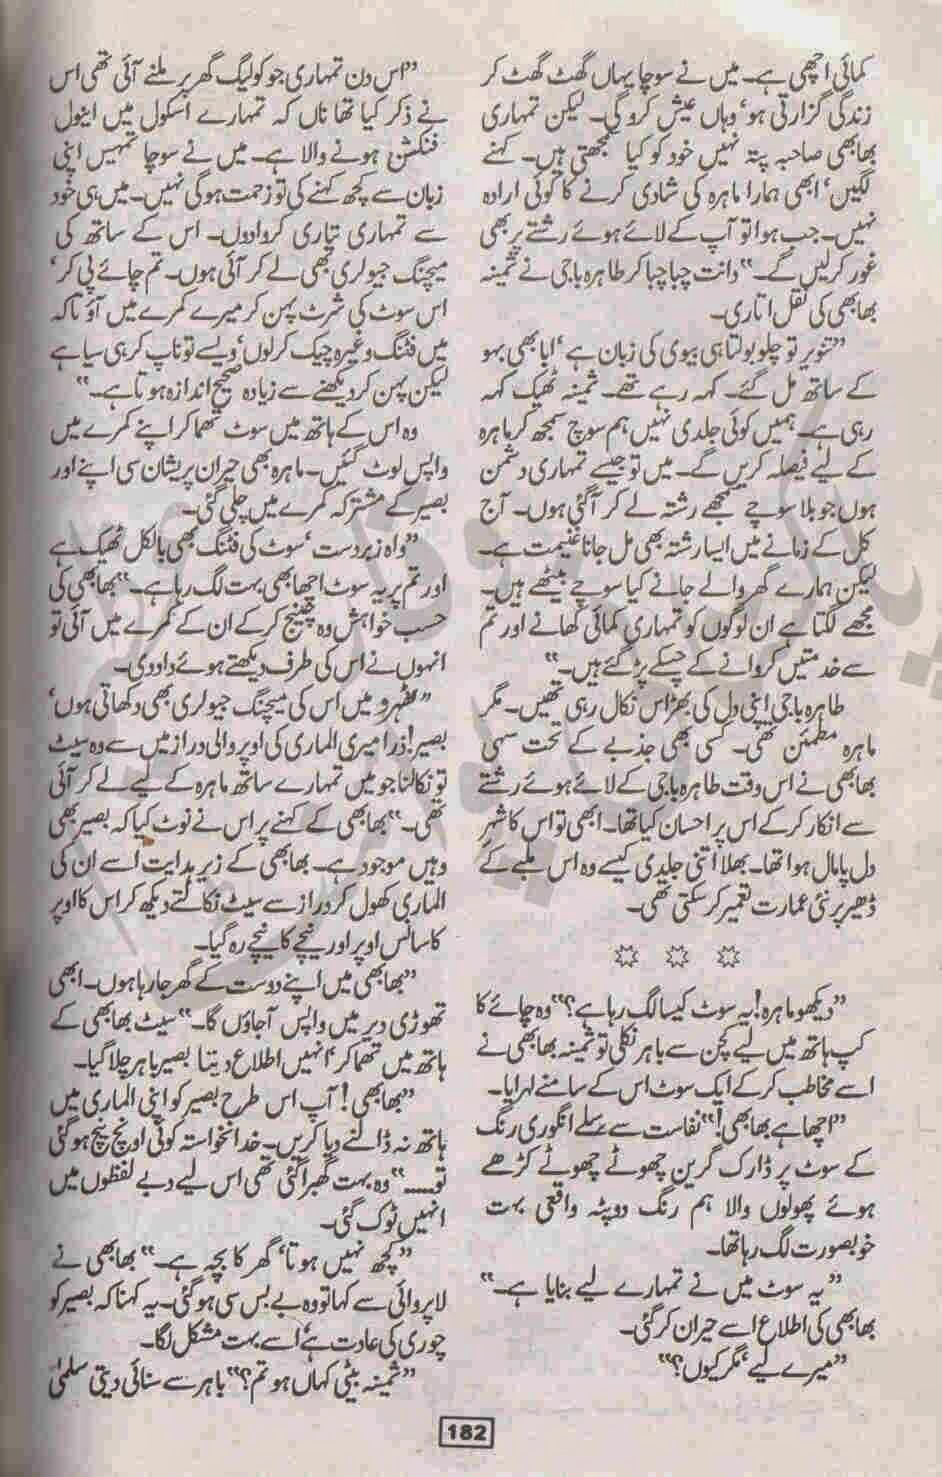 کمائی اچھی ہے۔ میں نے سوچا یہاں گھٹ گھٹ کر
زندگی گزارتی ہو‘ وہاں عیش کرو گی۔ لیکن تمہاری
بھابھی صاحبہ پتہ نہیں خود کو کیا سمجھتی ہیں۔ کہنے
لگیں‘ ابھی ہمارا ماہرہ کی شادی کرنے کا کوئی ارادہ
نہیں۔ جب ہوا تو آپ کے لائے ہوئے رشتے پر بھی
غور کرلیں گے۔“ دانت چبا چبا کر طاہرہ باجی نے ثمینہ
بھابھی کی نقل اتاری۔
”تنویر تو چلو بولتا ہی بیوی کی زبان ہے‘ ابا بھی بہو
کے ساتھ مل گئے۔ کہہ رہے تھے۔ ثمینہ ٹھیک کہہ
رہی ہے۔ ہمیں کوئی جلدی نہیں ہم سوچ سمجھ کر ماہرہ
کے لیے فیصلہ کریں گے۔ میں تو جیسے تمہاری دشمن
ہوں جو بلا سوچے سمجھے رشتہ لے کر آگئی ہوں۔ آج
کل کے زمانے میں ایسا رشتہ بھی مل جانا غنیمت ہے۔
لیکن ہمارے گھر والے جانے کیا سوچے بیٹھے ہیں۔
مجھے لگتا ہے ان لوگوں کو تمہاری کمائی کھانے اور تم
سے خدمتیں کروانے کے چسکے پڑ گئے ہیں۔“
طاہرہ باجی اپنی دل کی بھڑاس نکال رہی تھیں۔ مگر
ماہرہ مطمئن تھی۔ کسی بھی جذبے کے تحت سہی
بھابھی نے اس وقت طاہرہ باجی کے لائے ہوئے رشتے
سے انکار کرکے اس پر احسان کیا تھا۔ ابھی تو اس کا شہرِ
دل پامال ہوا تھا۔ بھلا اتنی جلدی کیسے وہ اس ملبے کے
ڈھیر پر نئی عمارت تعمیر کرسکتی تھی۔
☼ ☼ ☼
”دیکھو ماہرہ! یہ سوٹ کیسا لگ رہا ہے؟“ وہ چائے کا
کپ ہاتھ میں لیے کچن سے باہر نکلی تو ثمینہ بھابھی نے
اسے مخاطب کرکے ایک سوٹ اس کے سامنے لہرایا۔
”اچھا ہے بھابھی!“ نفاست سے سلے انگوری رنگ
کے سوٹ پر ڈارک گرین چھوٹے چھوٹے کڑھے
ہوئے پھولوں والا ہم رنگ دوپٹہ واقعی بہت
خوبصورت لگ رہا تھا۔
”یہ سوٹ میں نے تمہارے لیے بنایا ہے۔“
بھابھی کی اطلاع اسے حیران کرگئی۔
”میرے لیے‘ مگر کیوں؟“
”اس دن تمہاری جو کولیگ گھر پر ملنے آئی تھی اس
نے ذکر کیا تھا ناں کہ تمہارے اسکول میں اینول
فنکشن ہونے والا ہے۔ میں نے سوچا تمہیں اپنی
زبان سے کچھ کہنے کی تو زحمت ہوگی نہیں۔ میں ہی خود
سے تمہاری تیاری کروا دوں۔ اس کے ساتھ کی
میچنگ جیولری بھی لے کر آئی ہوں۔ تم چائے پی کر‘
اس سوٹ کی شرٹ پہن کر میرے کمرے میں آؤ تاکہ
میں فٹنگ وغیرہ چیک کرلوں‘ ویسے تو ناپ کر ہی سیا ہے
لیکن پہن کر دیکھنے سے زیادہ صحیح اندازہ ہوتا ہے۔“
وہ اس کے ہاتھ میں سوٹ تھما کر اپنے کمرے میں
واپس لوٹ گئیں۔ ماہرہ بھی حیران پریشان سی اپنے اور
بصیر کے مشترکہ کمرے میں چلی گئی۔
”واہ زبردست‘ سوٹ کی فٹنگ بھی بالکل ٹھیک ہے
اور تم پر یہ سوٹ اچھا بھی بہت لگ رہا ہے۔“ بھابھی کی
حسب خواہش وہ چینج کرکے ان کے کمرے میں آئی تو
انہوں نے اس کی طرف دیکھتے ہوئے داد دی۔
”ٹھہرو میں اس کی میچنگ جیولری بھی دکھاتی ہوں‘
بصیر! ذرا میری الماری کی اوپر والی دراز میں سے وہ سیٹ
تو نکالنا جو میں تمہارے ساتھ ماہرہ کے لیے لے کر آئی
تھی۔“ بھابھی کے کہنے پر اس نے نوٹ کیا کہ بصیر بھی
وہیں موجود ہے۔ بھابھی کے زیر ہدایت اسے ان کی
الماری کھول کر دراز سے سیٹ نکالتے دیکھ کر اس کا اوپر
کا سانس اوپر اور نیچے کا نیچے رہ گیا۔
”بھابھی میں اپنے دوست کے گھر جارہا ہوں۔ ابھی
تھوڑی دیر میں واپس آجاؤں گا۔“ سیٹ بھابھی کے
ہاتھ میں تھما کر‘ انہیں اطلاع دیتا بصیر باہر چلا گیا۔
”بھابھی! آپ اس طرح بصیر کو اپنی الماری میں
ہاتھ نہ ڈالنے دیا کریں۔ خدانخواستہ کوئی اونچ نیچ ہوگئی
تو.....“ وہ بہت گھبرا گئی تھی اس لیے دبے لفظوں میں
انہیں ٹوک گئی۔
”کچھ نہیں ہوتا‘ گھر کا بچہ ہے۔“ بھابھی نے
لاپروائی سے کہا تو وہ بے بس سی ہوگئی۔ یہ کہنا کہ بصیر کو
چوری کی عادت ہے‘ اسے بہت مشکل لگا۔
”ثمینہ بیٹی کہاں ہو تم؟“ باہر سے سنائی دیتی سلمیٰ
182